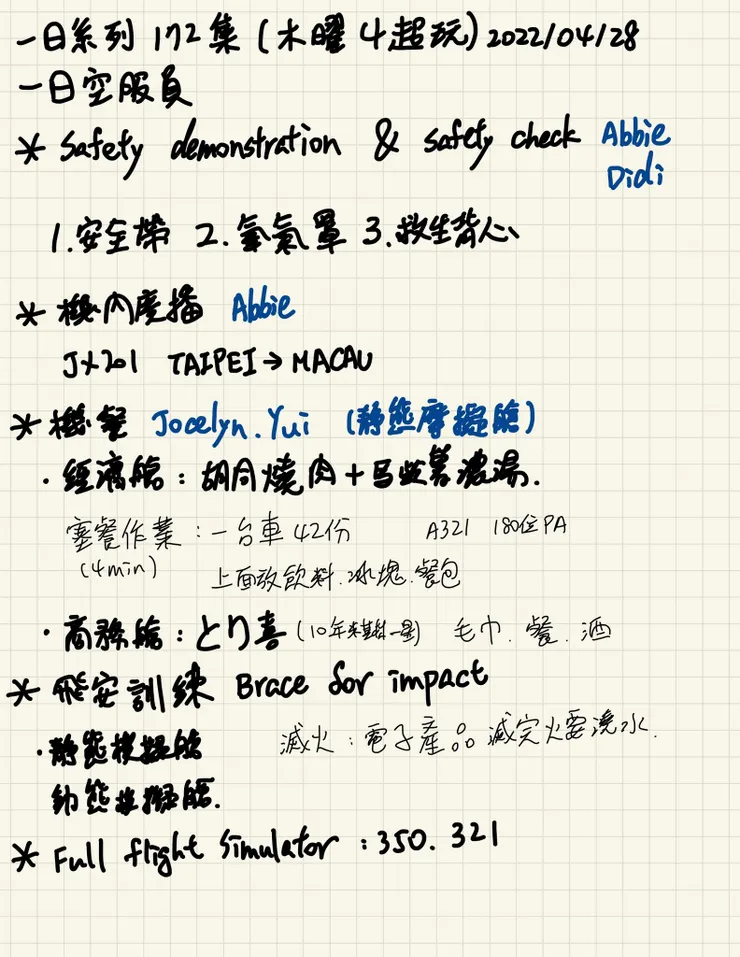 一日系列 172集 (木曜4超玩) 2022/04/28
一日空服員
* Safety demonstration & safety check Abbie
Didi
1.安全帶 2.氧氣罩 3.救生背心
* 機內廣播 Abbie
JX201 TAIPEI → MACAU
* 機餐 Jocelyn.Yui (靜態摩擬艙)
· 經濟艙: 胡同燒肉+馬鈴薯濃湯.
塞餐作業:一台車42份 A321 180位PA
(4min) 上面放飲料.冰塊.餐包
· 商務艙: とり喜 (10年米其林一星) 毛巾.餐.酒
* 飛安訓練 Brace for impact
· 靜態模擬艙 滅火:電子產品滅完火要澆水.
動態模擬艙.
* Full flight Simulator : 350. 321